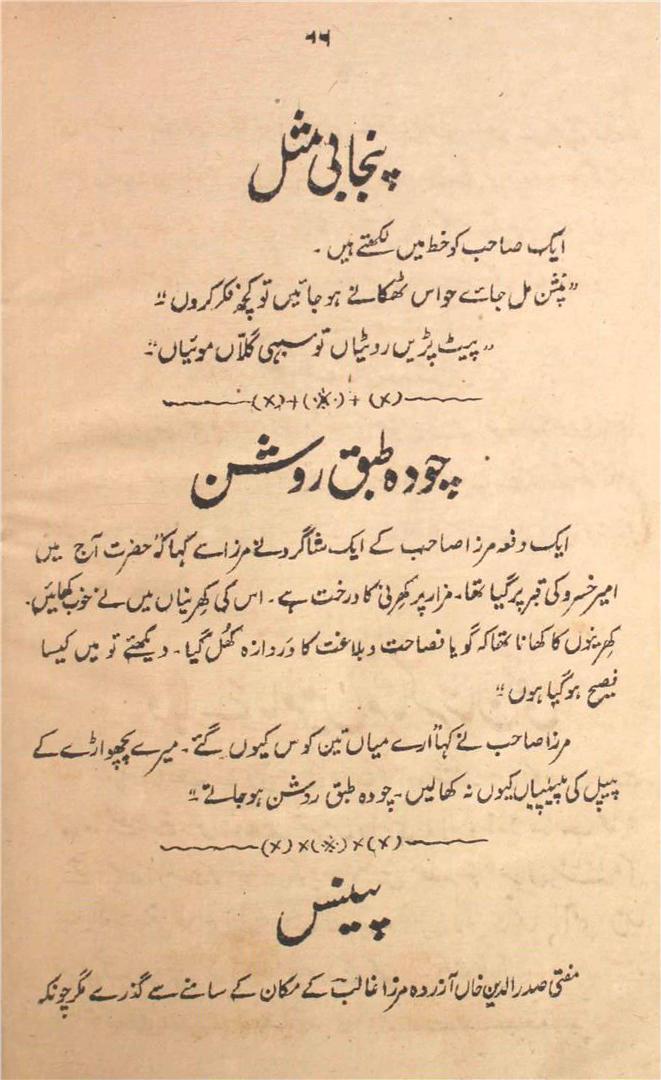 ۶۶
پنجابی مثل
ایک صاحب کو خط میں لکھتے ہیں ۔
”پنشن مل جائے حواس ٹھکانے ہو جائیں تو کچھ فکر کروں“
”پیٹ پڑیں روٹیاں تو سبھی گلّاں موئیاں“
(×)+(※)+(×)
چودہ طبق روشن
ایک دفعہ مرزا صاحب کے ایک شاگرد نے مرزا سے کہا کہ ”حضرت آج میں
امیر خسرو کی قبر پر گیا تھا۔ مزار پر کھرنی کا درخت ہے۔ اس کی کھرنیاں میں نے خوب کھائیں۔
کھرنیوں کا کھانا تھا کہ گویا فصاحت و بلاغت کا دروازہ کھُل گیا۔ دیکھئے تو میں کیسا
فصیح ہو گیا ہوں“
مرزا صاحب نے کہا ”ارے میاں تین کوس کیوں گئے۔ میرے پچھواڑے کے
پیپل کی پیپلیاں کیوں نہ کھا لیں۔ چودہ طبق روشن ہو جاتے“
(×)×(※)×(×)
پینس
مفتی صدرالدین خاں آزردہ مرزا غالبؔ کے مکان کے سامنے سے گذرے مگر چونکہ